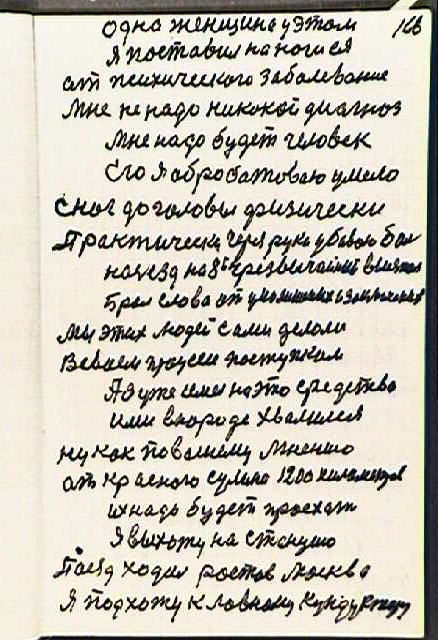 одна женщина у этом 166
Я поставил на ноги ея
от психического заболевание
Мне не надо никокой диагноз
Мне надо будет человек
Его я обробатоваю умело
с ног до головы физически
Практически через руки убоваю бол
на съезд на
брал слова от
Мы этих людей сами делоли
всваем поступком
Я уже имел на это средства
ими в народе хвалился
ну как по вашему мнению
от Красного сулина 1200 километров
их надо будет проехат
Я выхожу на станцию
Поезд ходил ростов москва
Я подхожу к главному кундуктору